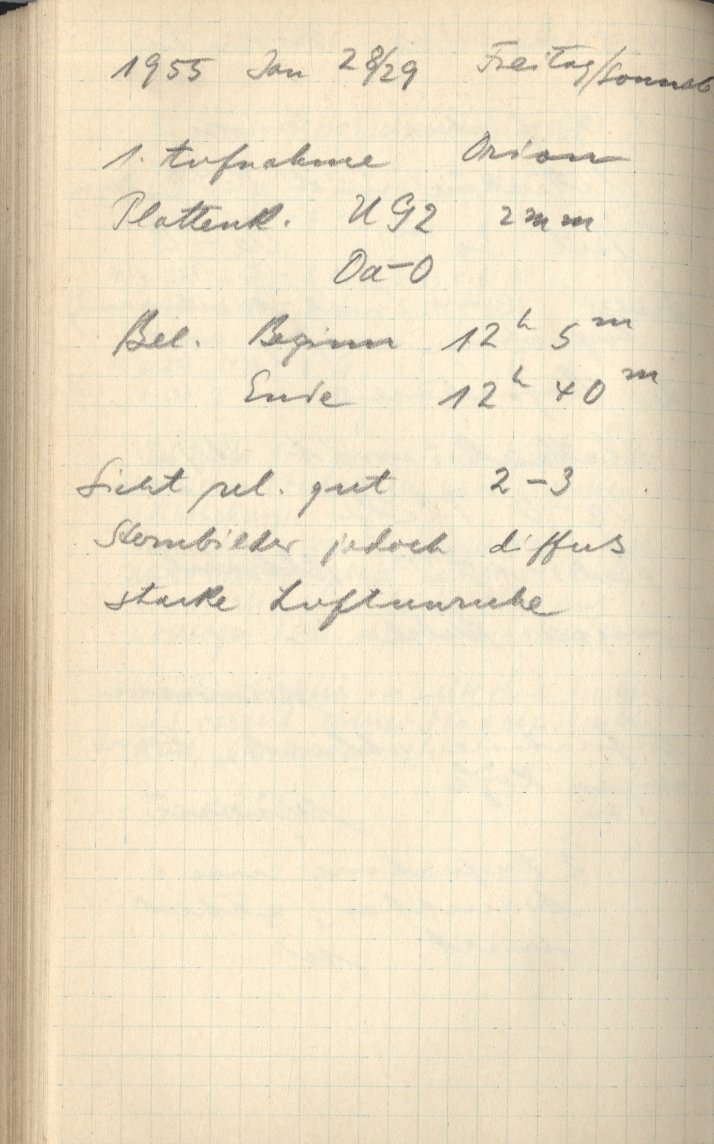 1955 Jan 28/29 Freitag/Sonnab
1. Aufnahme Orion
Plattenk. UG2 2mm
Oa-O
Bel. Beginn 12h 5m
Ende 12h 40m
Sicht rel. gut 2-3
Sternbilder jedoch diffus
starke Luftunruhe